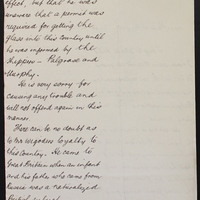 effect, but that he was
unaware that a permit was
required for getting the
glass into this Country until
he was informed by the
shippers – Palgrave and
Murphy.
He is very sorry for
causing any trouble and
will not offend again in this
manner.
There can be no doubt as
to Mr loyalty to
this Country. He came to
Great Britain when an infant
and his father who came from
Russia was a naturalized
British subject